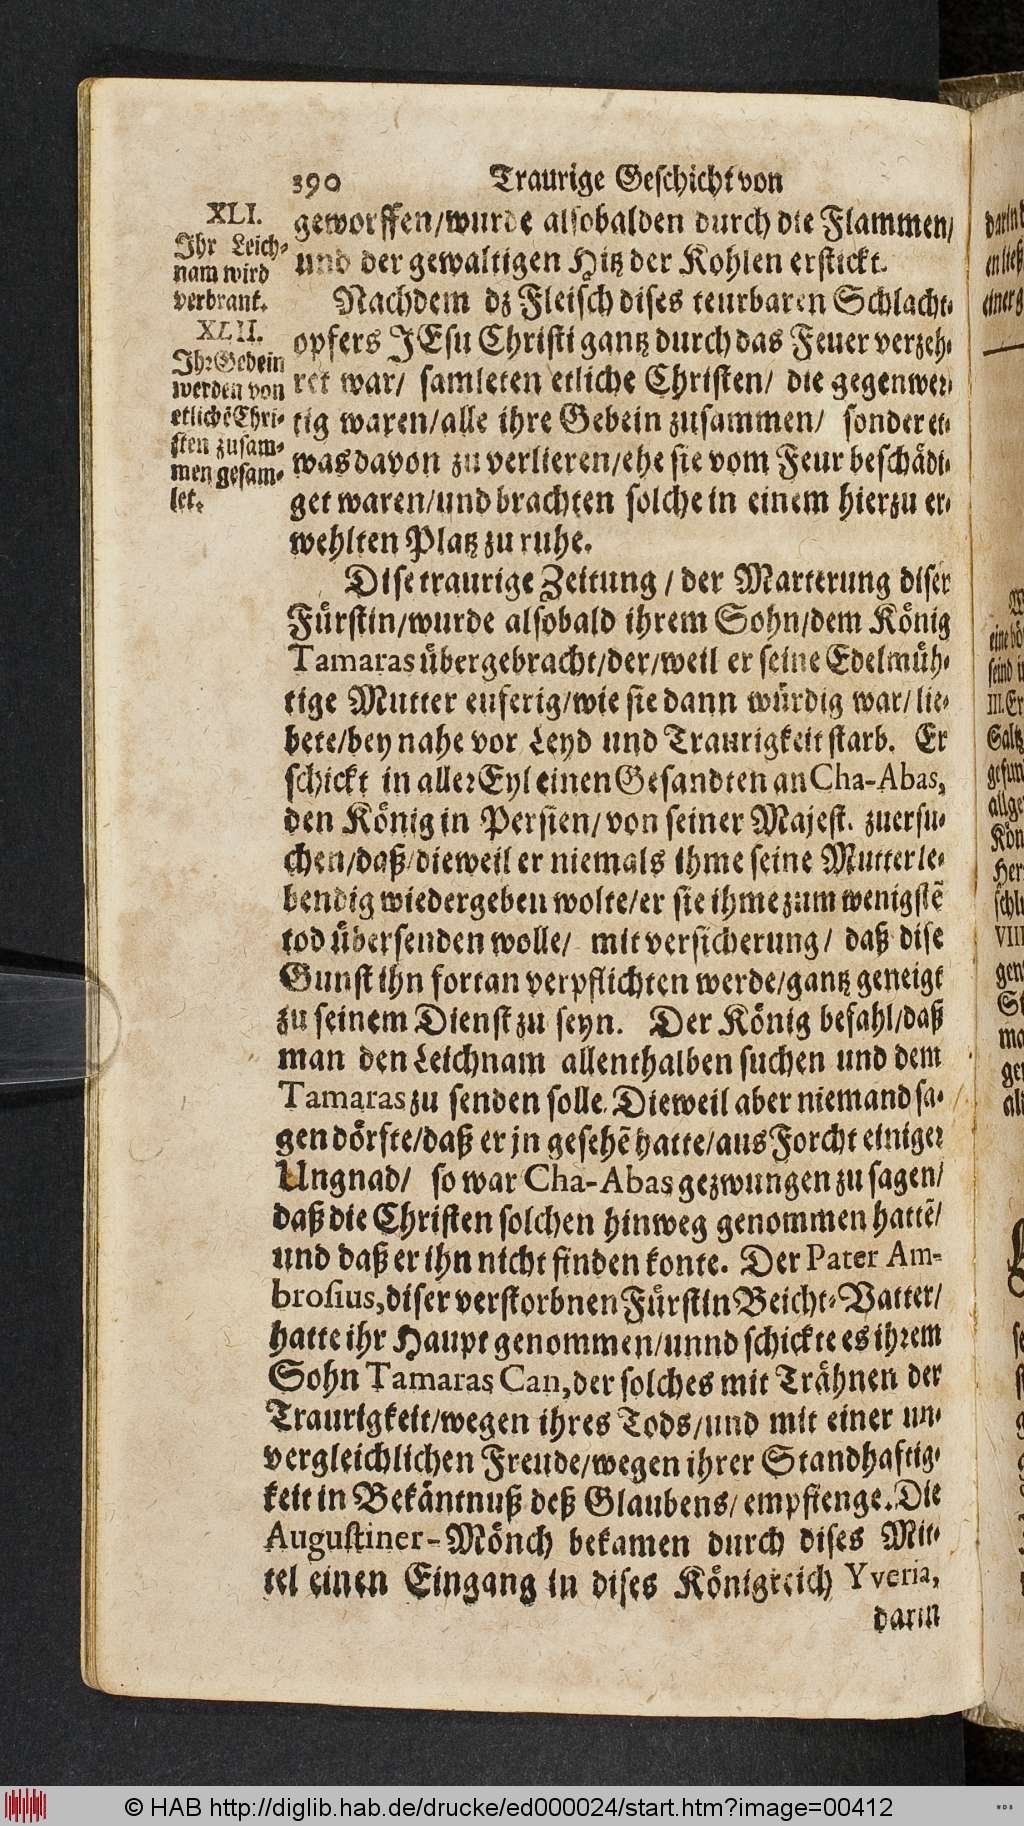 390 Traurige Geschicht von
XLI.
Ihr Leich-
nam wird
verbrant.
XLII.
Ihr Gebein
werden von
etlichẽ Chri-
sten zusam-
men gesam-
let.
geworffen/wurde alsobalden durch die Flammen/
und der gewaltigen Hitz der Kohlen erstickt.
Nachdem dz Fleisch dises teurbaren Schlacht-
opfers JEsu Christi gantz durch das Feuer verzeh-
ret war/ samleten etliche Christen/ die gegenwer-
tig waren/alle ihre Gebein zusammen/ sonder et-
was davon zu verlieren/ehe sie vom Feur beschädi-
get waren/und brachten solche in einem hierzu er-
wehlten Platz zu ruhe.
Dise traurige Zeitung / der Marterung diser
Fürstin/wurde alsobald ihrem Sohn/dem König
Tamaras übergebracht/der/weil er seine Edelmüh-
tige Mutter euferig/wie sie dann würdig war/ lie-
bete/bey nahe vor Leyd und Traurigkeit starb. Er
schickt in aller Eyl einen Gesandten an Cha-Abas,
den König in Persien/von seiner Majest. zuersu-
chen/daß/dieweil er niemals ihme seine Mutter le-
bendig wiedergeben wolte/er sie ihme zum wenigstẽ
tod übersenden wolle/ mit versicherung/ daß dise
Gunst ihn fortan verpflichten werde/gantz geneigt
zu seinem Dienst zu seyn. Der König befahl/daß
man den Leichnam allenthalben suchen und dem
Tamaras zu senden solle. Dieweil aber niemand sa-
gen dörfte/daß er jn gesehẽ hatte/aus Forcht einiger
Ungnad/ so war Cha-Abas gezwungen zu sagen/
daß die Christen solchen hinweg genommen hattẽ/
und daß er ihn nicht finden konte. Der Pater Am-
brosius, diser verstorbnen Fürstin Beicht-Vatter/
hatte ihr Haupt genommen/unnd schickte es ihrem
Sohn Tamaras Can, der solches mit Trähnen der
Traurigkeit/wegen ihres Tods/und mit einer un-
vergleichlichen Freude/wegen ihrer Standhaftig-
keit in Bekäntnuß deß Glaubens/ empfienge. Die
Augustiner-Mönch bekamen durch dises Mit-
tel einen Eingang in dises Königreich Yveria,
darin
© HAB http://diglib.hab.de/drucke/ed000024/start.htm?image=00412